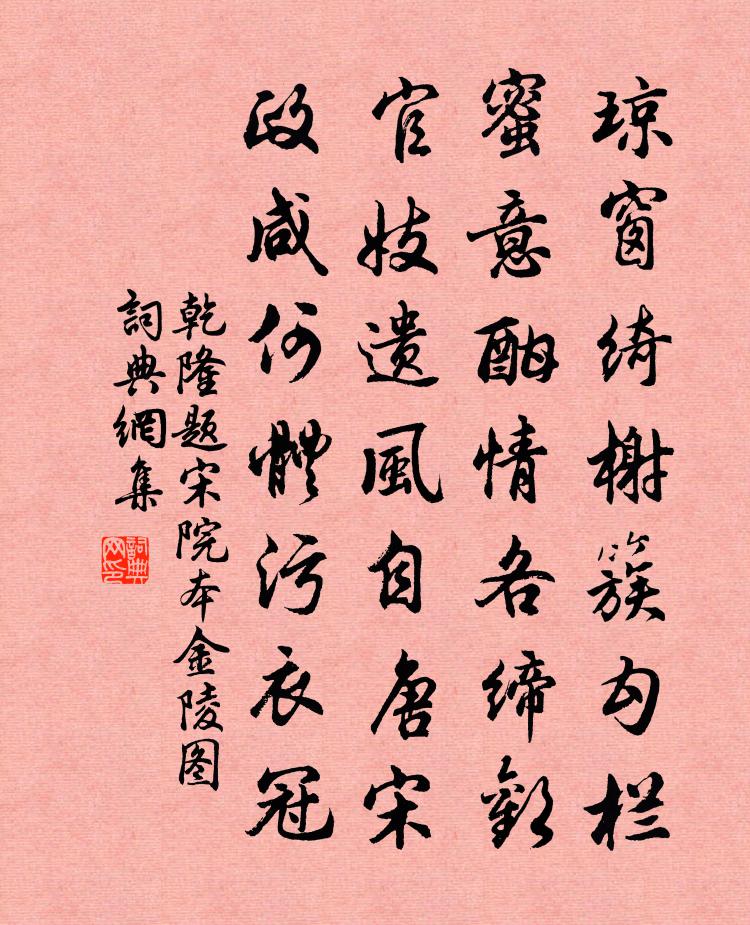 琼窗绮榭簇勾栏
蜜意酣情各缔歡
官妓遗風自唐宋
政咸何體污衣冠
乾隆题宋院本金陵图
詞典網集
詞典网印